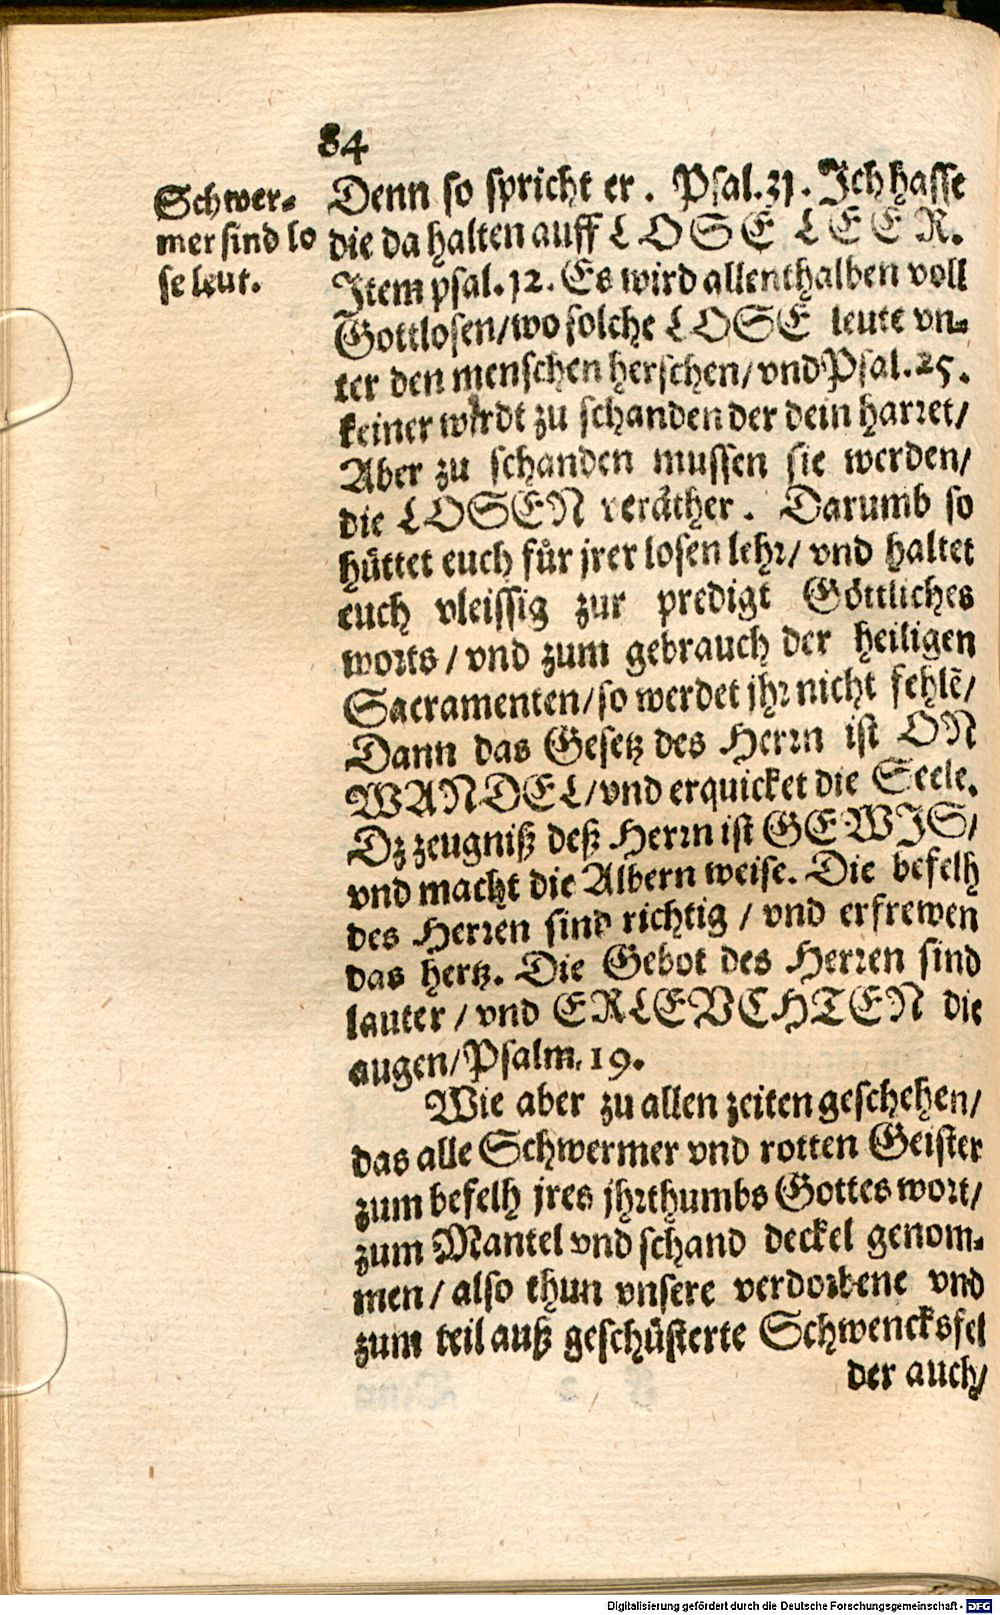 84
Schwer-
mer sind lo
se leut.
Denn so spricht er. Psal. 31. Ich hasse
die da halten auff LOSE LEER.
Item psal. 12. Es wird allenthalben voll
Gottlosen/ wo solche LOSE leute vn-
ter den menschen herschen/ vnd Psal. 25.
keiner wirdt zu schanden der dein harret/
Aber zu schanden mussen sie werden/
die LOSEN veraͤther. Darumb so
huͤttet euch fuͤr jrer losen lehr/ vnd haltet
euch vleissig zur predigt Goͤttliches
worts/ vnd zum gebrauch der heiligen
Sacramenten/ so werdet jhr nicht fehlẽ/
Dann das Gesetz des Herrn ist ON
WANDEL/ vnd erquicket die Seele.
Dz zeugniß deß Herrn ist GEWIS/
vnd macht die Albern weise. Die befelh
des Herren sind richtig/ vnd erfrewen
das hertz. Die Gebot des Herren sind
lauter/ vnd ERLEVCHTEN die
augen/ Psalm. 19.
Wie aber zu allen zeiten geschehen/
das alle Schwermer vnd rotten Geister
zum befelh jres jhrthumbs Gottes wort/
zum Mantel vnd schand deckel genom-
men/ also thun vnsere verdorbene vnd
zum teil auß geschuͤsterte Schwencksfel
der auch/
Digitalisierung gefördert durch die Deutsche Forschungsgemeinschaft - DFG